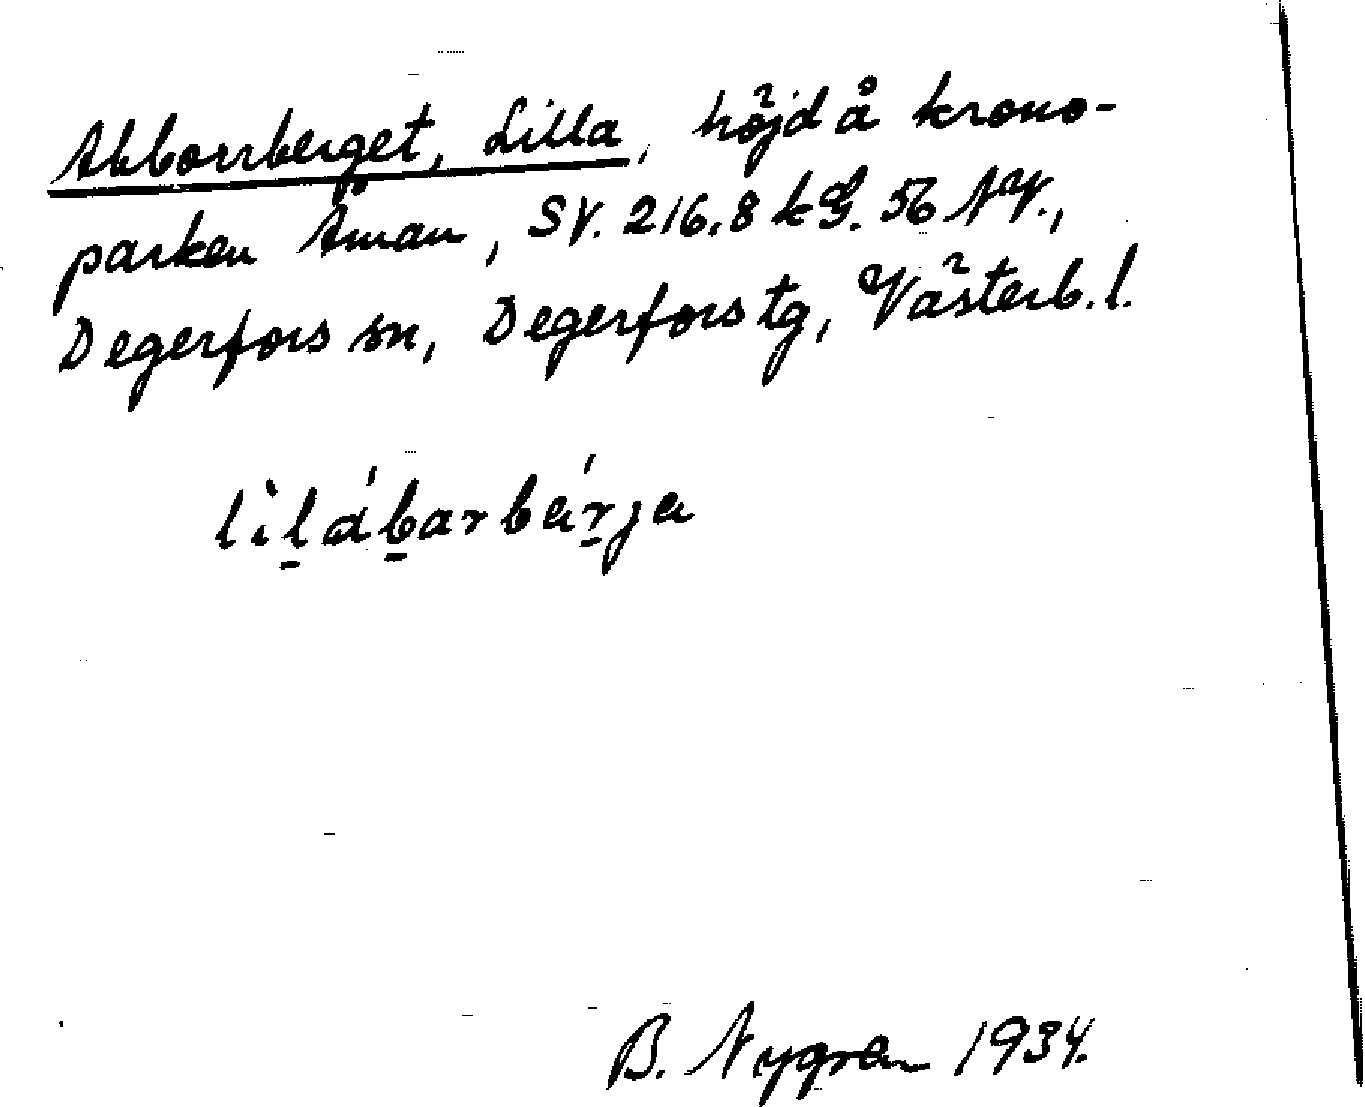 Abborrberget, Lilla, höjd å krono-
parken Åman, SV. 216,8 kG. 56 NV.,
Degerfors sn, Degerfors tg, Västerb. l.
lilábarbárja
B. Nygren 1934.